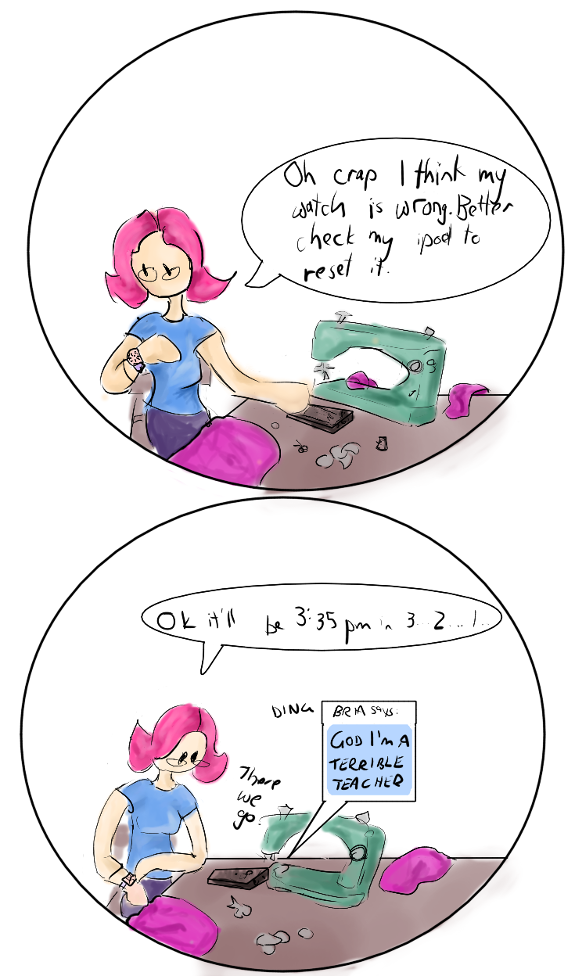 Oh crap I think my
watch is wrong. Better
check my ipod to
reset it.
Ok it'll be 3:35 pm in 3... 2... 1...
DING
BRIA says:
GOD I'M A
TERRIBLE
TEACHER
There
we
go